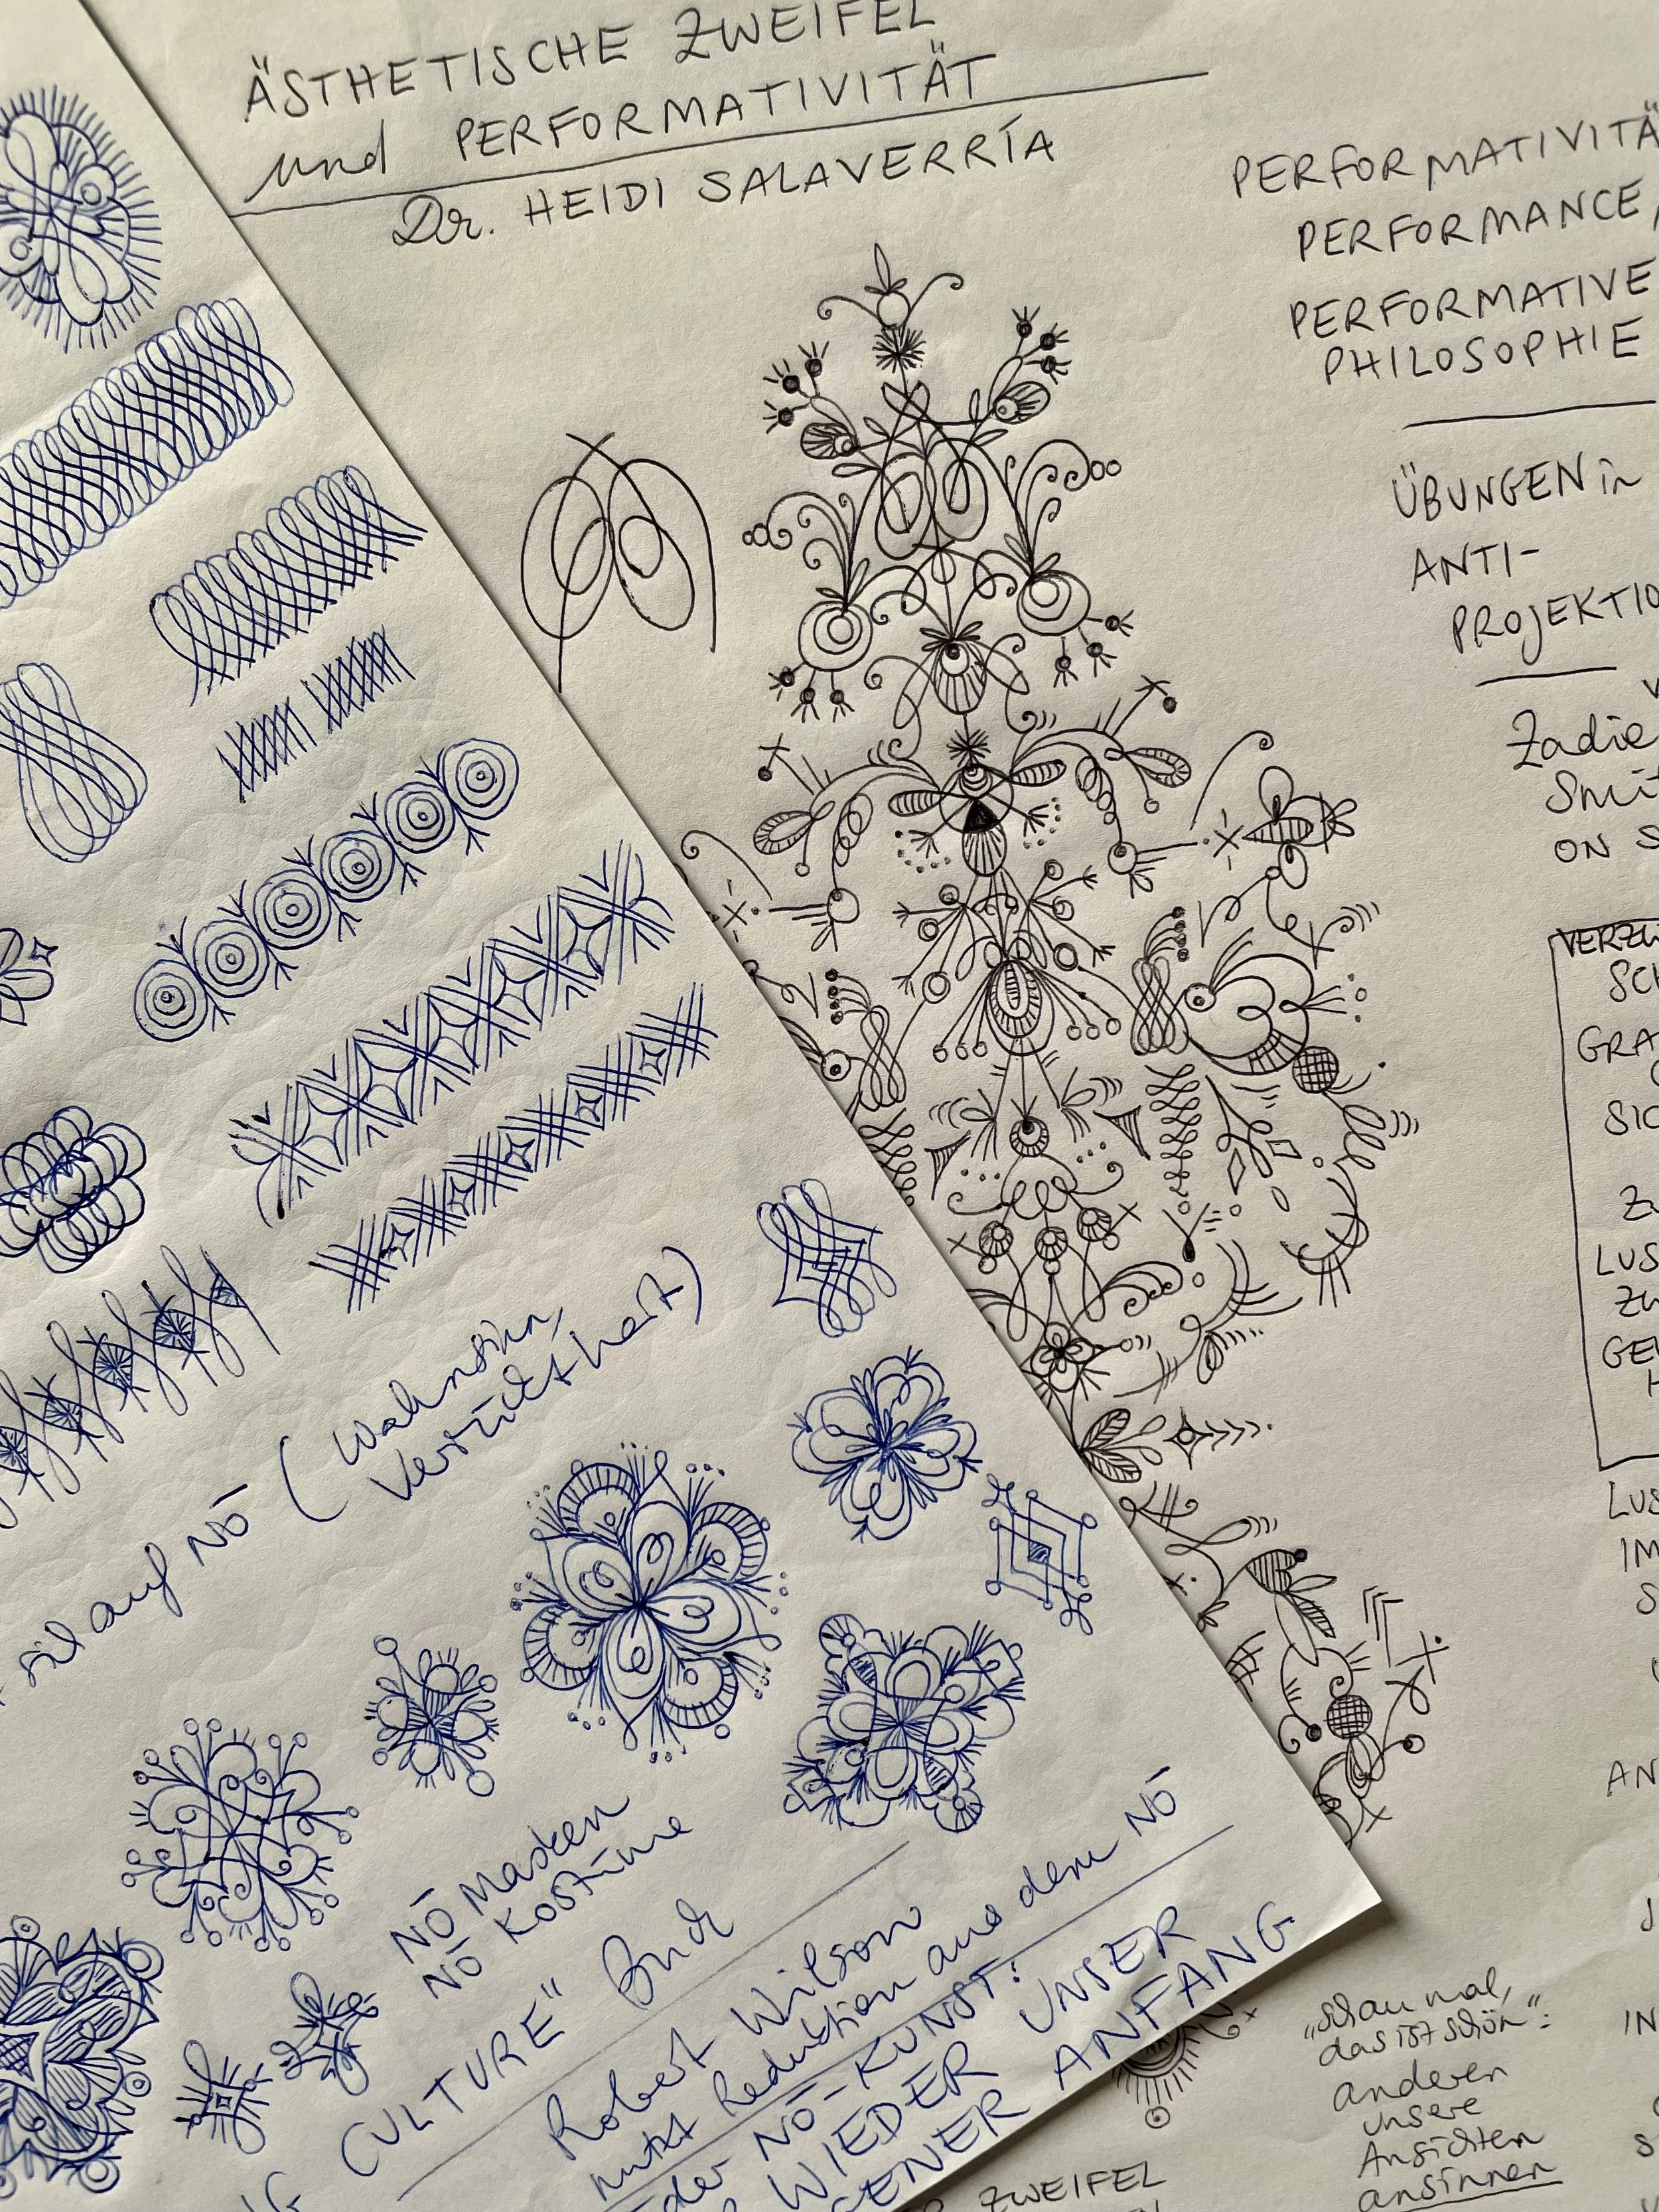 ÄSTHETISCHE ZWEIFEL
und PERFORMATIVITÄT
Dr. HEIDI SALAVERRÍA
PERFORMATIVITÄ
PERFORMANCE,
PERFORMATIVE
PHILOSOPHIE
ÜBUNGEN in
ANTI-
PROJEKTIO
Zadie
Smi
ON S
VERZW
SC
GRA
SIC
ZU
LUS
ZW
GE
H
LUS
IM
S
AN
IN
„Schau mal,
das ist schön":
anderen
unsere
Ansichten
ansinnen
ZWEIFEL
auf NŌ (Wahnsinn,
Verrücktheit)
NŌ Masken
NŌ Kostüme
CULTURE" Buch
Robert Wilson
nutzt Reduktion aus dem NŌ
der NŌ-KUNST:
WIEDER UNSER
ANFANG